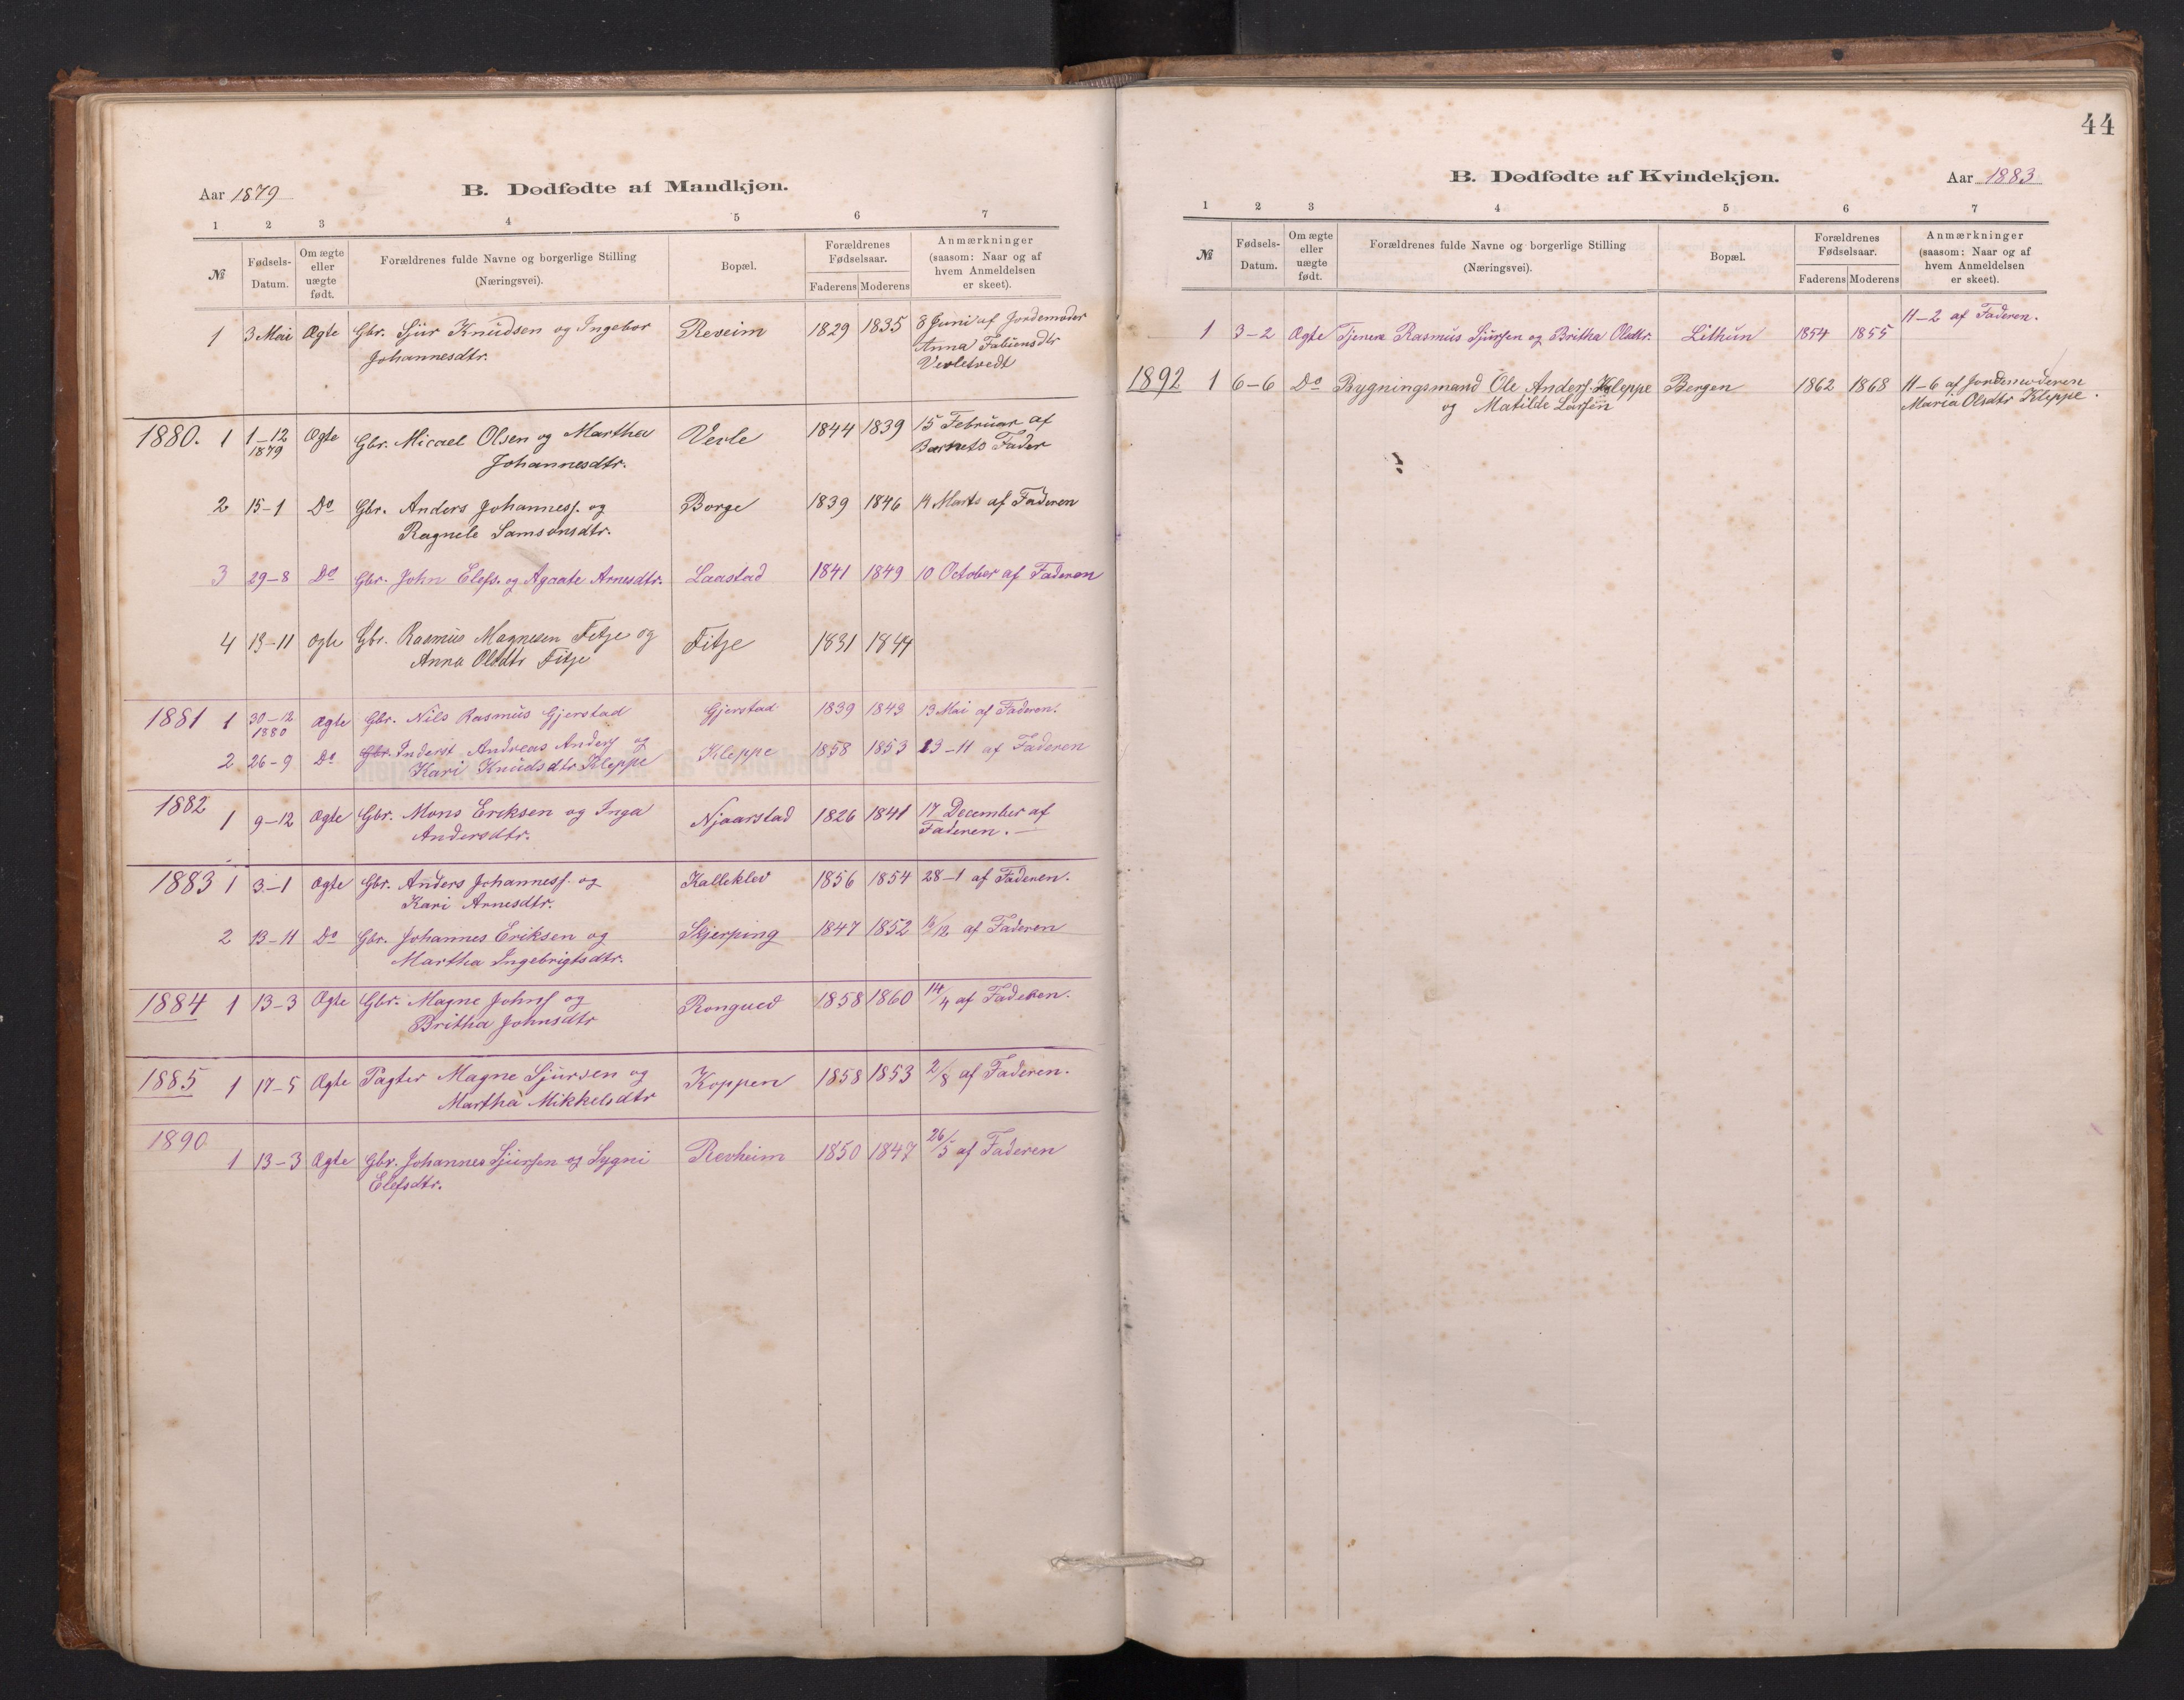 Aar 1879 B. Dødfødte af Mandkjøn.
1 2 3 4 5 6 7
№ Fødsels-Datum. Om ægte eller uægte født. Forældrenes fulde Navne og borgerlige Stilling (Næringsvei). Bopæl. Forældrenes Fødselsaar. Faderens Moderens Anmærkninger (saasom: Naar og af hvem Anmeldelsen er skeet).
1 3 Mai Ægte Gbr. Sjur Knudsen og Ingebor Reveim 1829 1835 8 Juni af Jordemoder
Johannesdtr. Anna Fabiensdtr
Verletvedt
1880. 1 1-12 Ægte Gbr. Micael Olsen og Martha Verle 1844 1839 15 Februar af
1879 Johannesdtr. Barnets Fader
2 15-1 Do Gbr. Anders Johannesf. og Borge 1839 1846 14 Marts af Faderen
Ragnele Samsonsdtr.
3 29-8 Do Gbr. John Elefs. og Agaate Arnesdtr. Laastad 1841 1849 10 October af Faderen
4 13-11 Ægte Gbr. Rasmus Magnesen Fitje og Fitje 1831 1844
Anna Olsdtr Fitje
1881 1 30-12 Ægte Gbr. Nils Rasmus Gjerstad Gjerstad 1839 1843 13 Mai af Faderen.
1880
2 26-9 Do Gbr. Inderst Andreas Andersf og Kleppe 1858 1853 23-11 af Faderen
Kari Knudsdtr Kleppe
1882 1 9-12 Ægte Gbr. Mons Ericksen og Inga Njaarstad 1826 1841 17 December af
Andersdtr. Faderen.
1883 1 3-1 Ægte Gbr. Anders Johannesf. og Kalleklev 1856 1854 28-1 af Faderen.
Kari Arnesdtr.
2 13-11 Do Gbr. Johannes Eriksen og Skjerping 1847 1852 13/12 af Faderen
Martha Ingebrigtsdtr.
1884 1 13-3 Ægte Gbr. Magne Johnsf og Rongved 1858 1860 14/4 af Faderen.
Britha Johnsdtr
1885 1 17-5 Ægte Pagter Magne Sjursen og Koppen 1858 1853 2/8 af Faderen.
Martha Mikkelsdtr
1890
1 13-3 Ægte Gbr. Johannes Sjursen og Sygni Revheim 1850 1847 26/5 af Faderen
Elefsdtr.
44
B. Dødfødte af Kvindekjøn. Aar 1883
1 2 3 4 5 6 7
№ Fødsels-Datum. Om ægte eller uægte født. Forældrenes fulde Navne og borgerlige Stilling (Næringsvei). Bopæl. Forældrenes Fødselsaar. Faderens Moderens Anmærkninger (saasom: Naar og af hvem Anmeldelsen er skeet).
1 3-2 Ægte Tjener Rasmus Sjursen og Britha Olsdtr. Lithun 1854 1855 11-2 af Faderen.
1892 1 6-6 Do Bygningsmand Ole Andersf. Kleppe Bergen 1862 1868 11-6 af Jordemoderen
og Matilde Larsen Maria Olsdtr Kleppe.